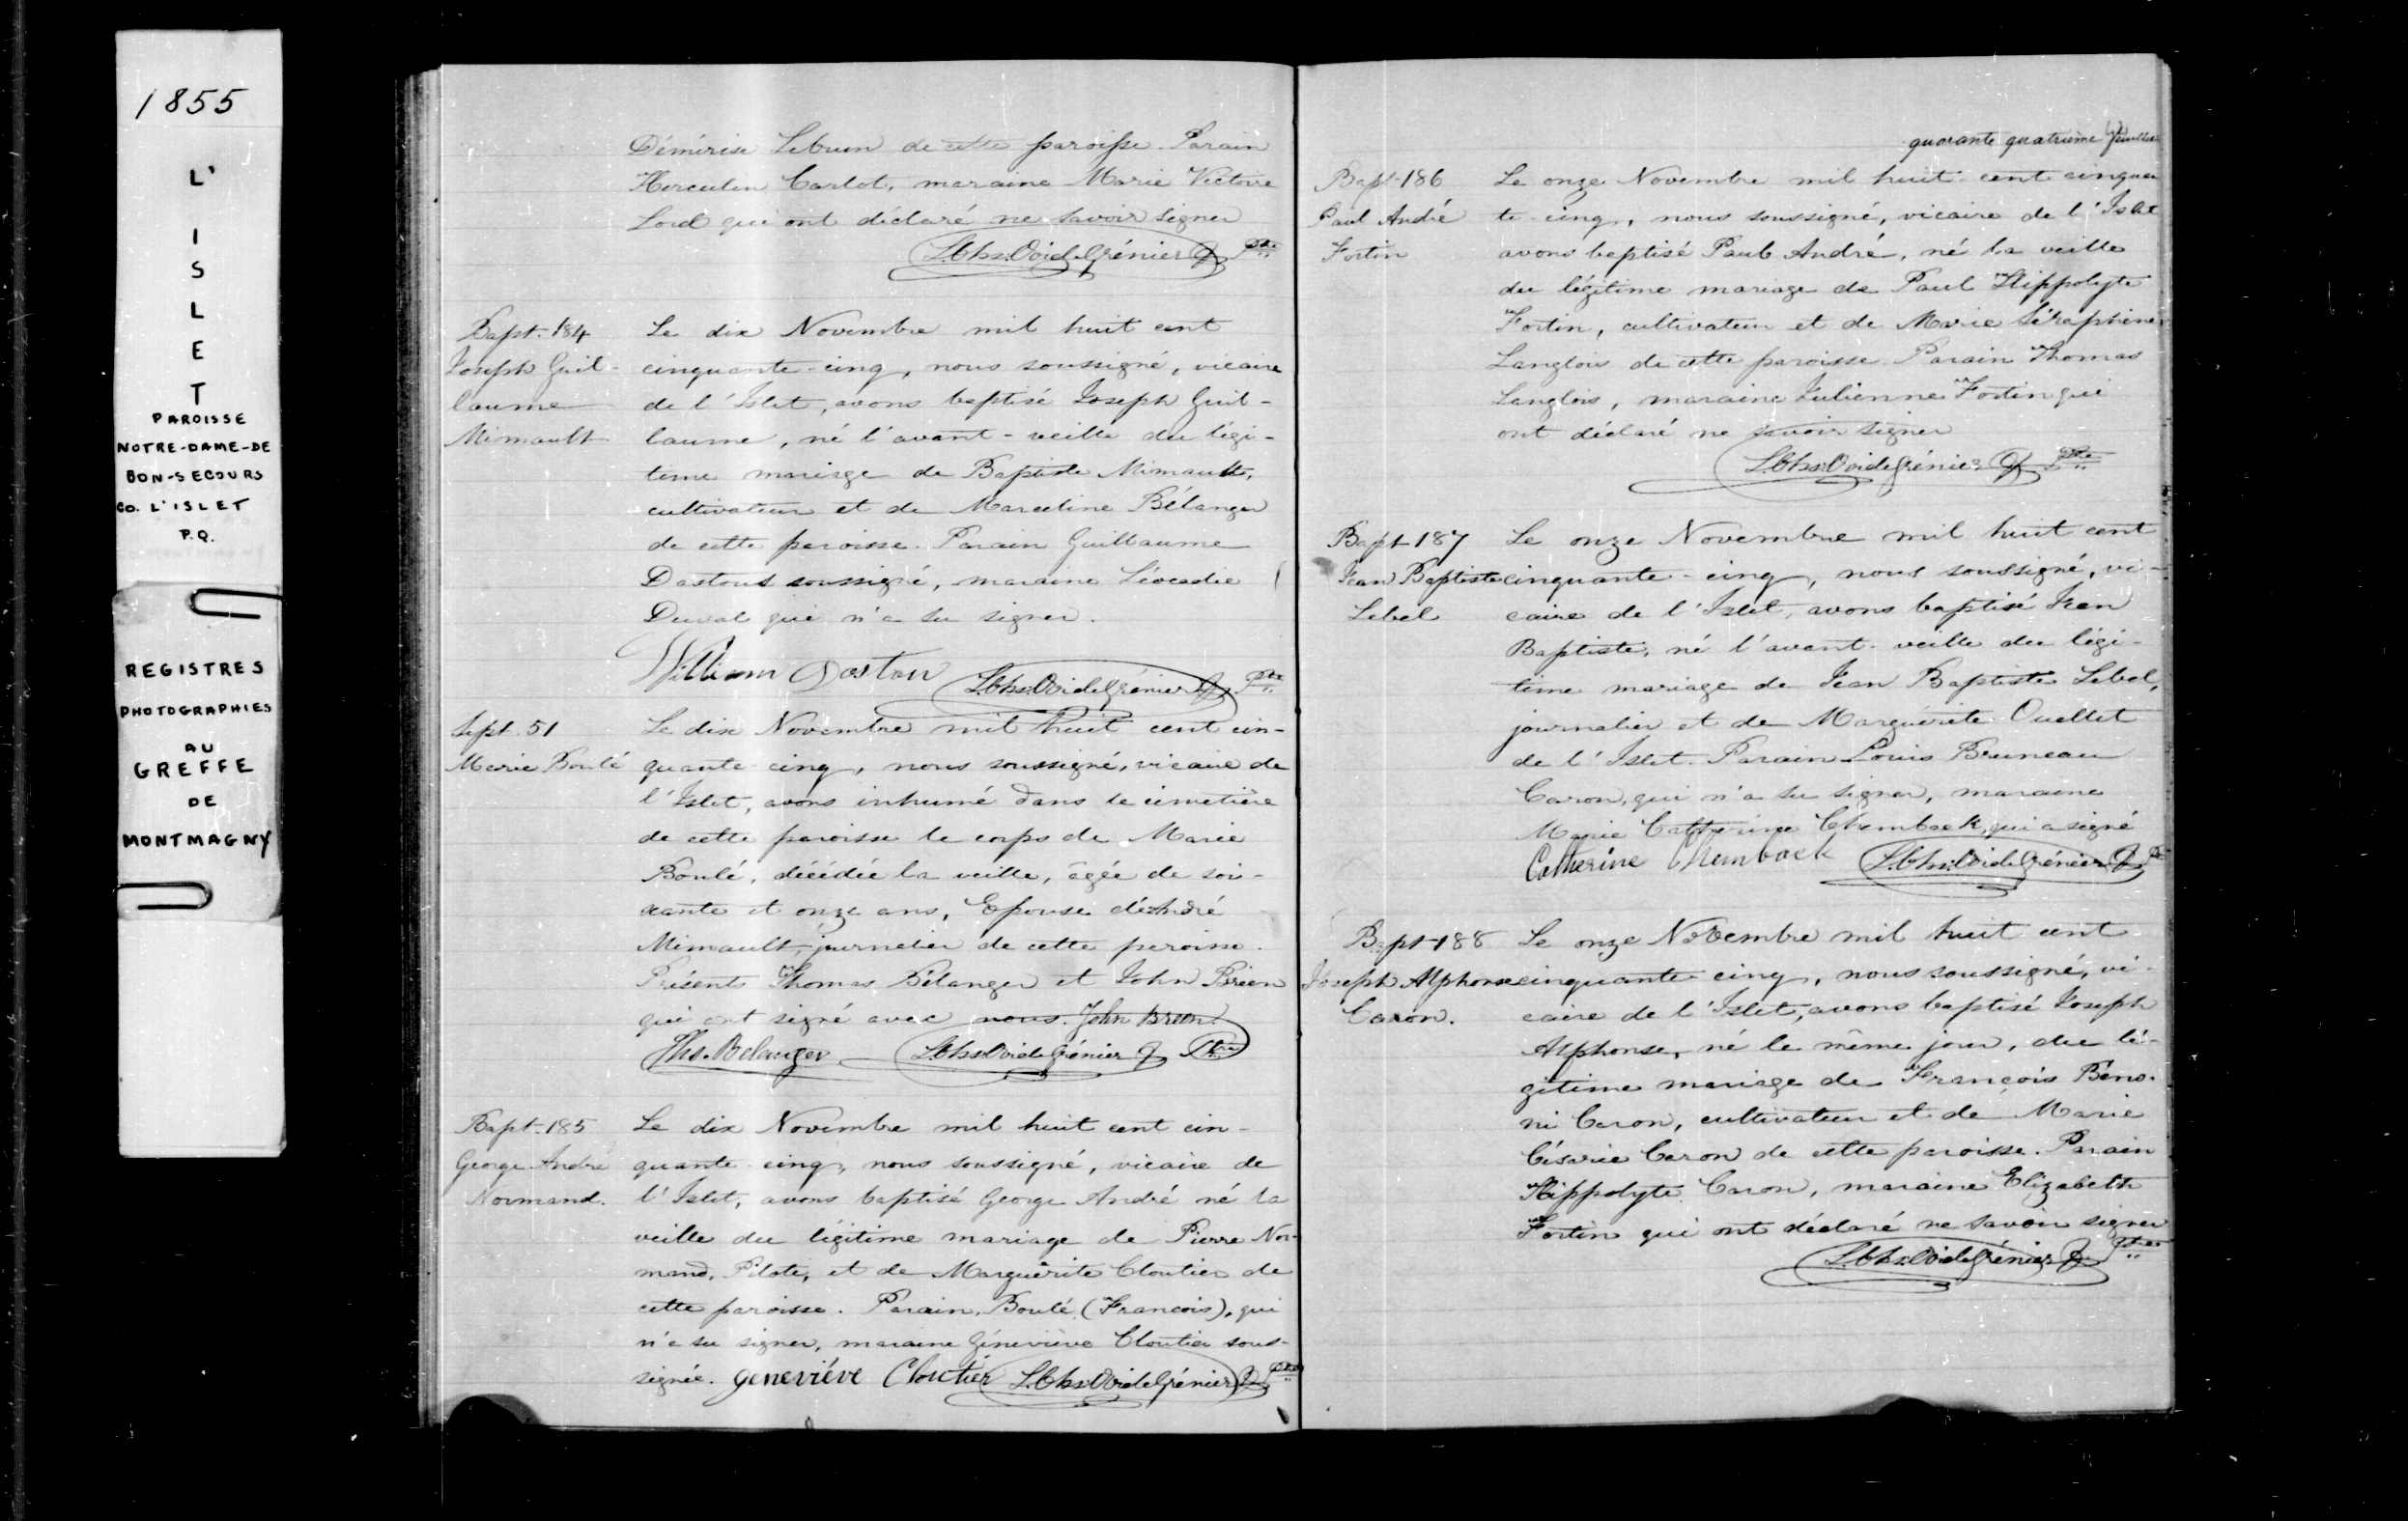 1855
L'
I
S
L
E
T
PAROISSE
NOTRE-DAME-DE
BON-SECOURS
CO. L'ISLET
P.Q.
REGISTRES
PHOTOGRAPHIES
AU
GREFFE
DE
MONTMAGNY
Démérise Lebrun de cette paroisse. Parain
Herculen Carlot, maraine Marie Victoire
Lord qui ont déclaré ne savoir signer
L.Chs.Ovide Grénier Ptre
Bapt. 184
Joseph Guil-
laume
Mimault
Le dix Novembre mil huit cent
cinquante-cinq, nous soussigné, vicaire
de l'Islet, avons baptisé Joseph Guil-
laume, né l'avant-veille du légi-
time mariage de Baptiste Mimault,
cultivateur et de Marceline Bélanger
de cette paroisse. Parain Guillaume
Dastous soussigné, maraine Léocadie
Duval qui n'a su signer.
William Daston L.Chs.Ovide Grénier Ptre
Sept. 51
Marie Boulé
Le dix Novembre mil huit cent cin-
quante-cinq, nous soussigné, vicaire de
l'Islet, avons inhumé dans le cimetière
de cette paroisse le corps de Marie
Boulé, décédée la veille, âgée de soi-
xante et onze ans, Epouse d'André
Mimault, journalier de cette paroisse.
Présents Thomas Bélanger et John Breen
qui ont signé avec nous. John Breen
Ths. Belanger L.Chs.Ovide Grénier Ptre
Bapt. 185
George André
Normand.
Le dix Novembre mil huit cent cin-
quante-cinq, nous soussigné, vicaire de
l'Islet, avons baptisé George André né la
veille du légitime mariage de Pierre Nor-
mand, Pilote, et de Marguérite Cloutier de
cette paroisse. Parain, Boulé (Francois), qui
n'a su signer, maraine Géneviève Cloutier sous-
signée. Geneviéve Cloutier L.Chs.Ovide Grénier Ptre
quarante quatrieme feuillet
Bapt-186
Paul André
Fortin
Le onze Novembre mil huit cent cinquan
te-cinq, nous soussigné, vicaire de l'Islet
avons baptisé Paul André, né la veille
du légitime mariage de Paul Hippolyte
Fortin, cultivateur et de Marie Séraphine
Langlois de cette paroisse. Parain Thomas
Langlois, maraine Julienne Fortin qui
ont déclaré ne savoir signer
L.Chs.Ovide Grénier Ptre
Bapt-187
Jean Baptiste
Lebel
Le onze Novembre mil huit cent
cinquante-cinq, nous soussigné, vi-
caire de l'Islet, avons baptisé Jean
Baptiste, né l'avant-veille du légi-
time mariage de Jean Baptiste Lebel,
journalier et de Marguérite Ouellet
de l'Islet. Parain Louis Bruneau
Caron, qui n'a su signer, maraine
Marie Catherine Chemback, qui a signé
Catherine Chemback L.Chs.Ovide Grénier Ptre
Bapt-188
Joseph Alphonse
Caron.
Le onze Novembre mil huit cent
cinquante-cinq, nous soussigné, vi-
caire de l'Islet, avons baptisé Joseph
Alphonse, né le même jour, du lé-
gitime mariage de François Béno-
ni Caron, cultivateur et de Marie
Césarie Caron de cette paroisse. Parain
Hippolyte Caron, maraine Elizabeth
Fortin qui ont déclaré ne savoir signer
L.Chs.Ovide Grénier Ptre